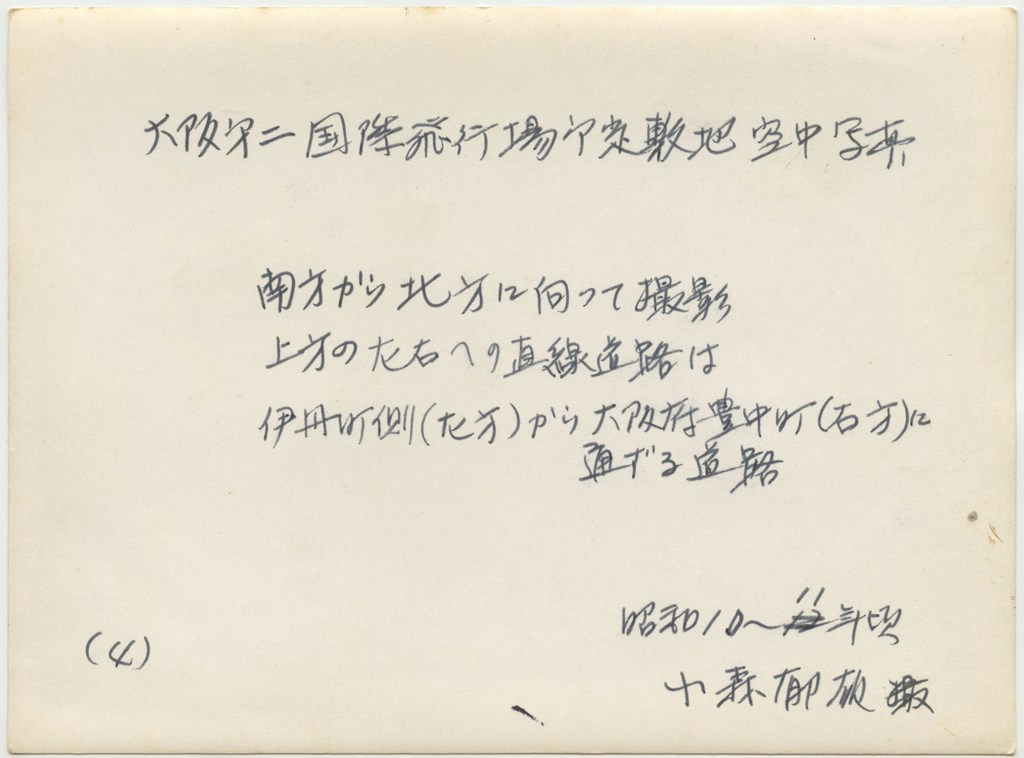 大阪第二国際飛行場予定敷地空中写真
南方から北方に向って撮影
上方の左右への直線道路は
伊丹町側(左方)から大阪府豊中町(右方)に
通ずる道路
昭和10〜11年頃
(4)
小森郁雄撮